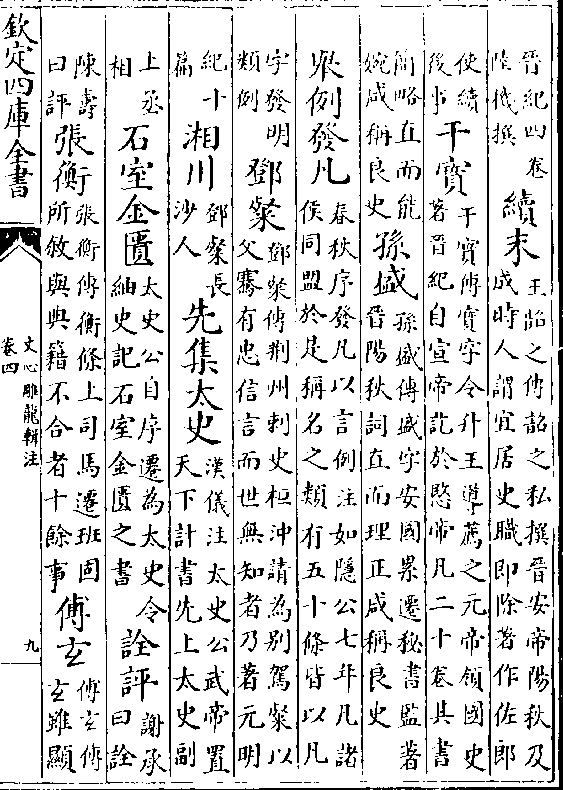 晉紀四卷
陸機撰
續末
王韶之傳韶之私撰晉安帝陽秋及
成時人謂宜居史職即除著作佐郎
使續
後事
干寳
干寳傳寳字令升王導薦之元帝領國史
著晉紀自宣帝訖於愍帝凡二十卷其書
簡略直而能
婉咸稱良史
孫盛
孫盛傳盛字安國累遷秘書監著
晉陽秋詞直而理正咸稱良史
衆例發凡
春秋序發凡以言例注如隱公七年凡諸
侯同盟於是稱名之類有五十條皆以凡
字發明
類例
鄧粲
鄧粲傳荆州刺史桓沖請為别駕粲以
父騫有忠信言而世無知者乃著元明
紀十
篇
湘川
鄧粲長
沙人
先集太史
漢儀注太史公武帝置
天下計書先上太史副
上丞
相
石室金匱
太史公自序遷為太史令
紬史記石室金匱之書
詮評
謝承
曰詮
陳壽
曰評
張衡
張衡傳衡條上司馬遷班固
所敘與典籍不合者十餘事
傅玄
傅玄傳
玄雖顯
欽定四庫全書
文心雕龍輯注
卷四
九